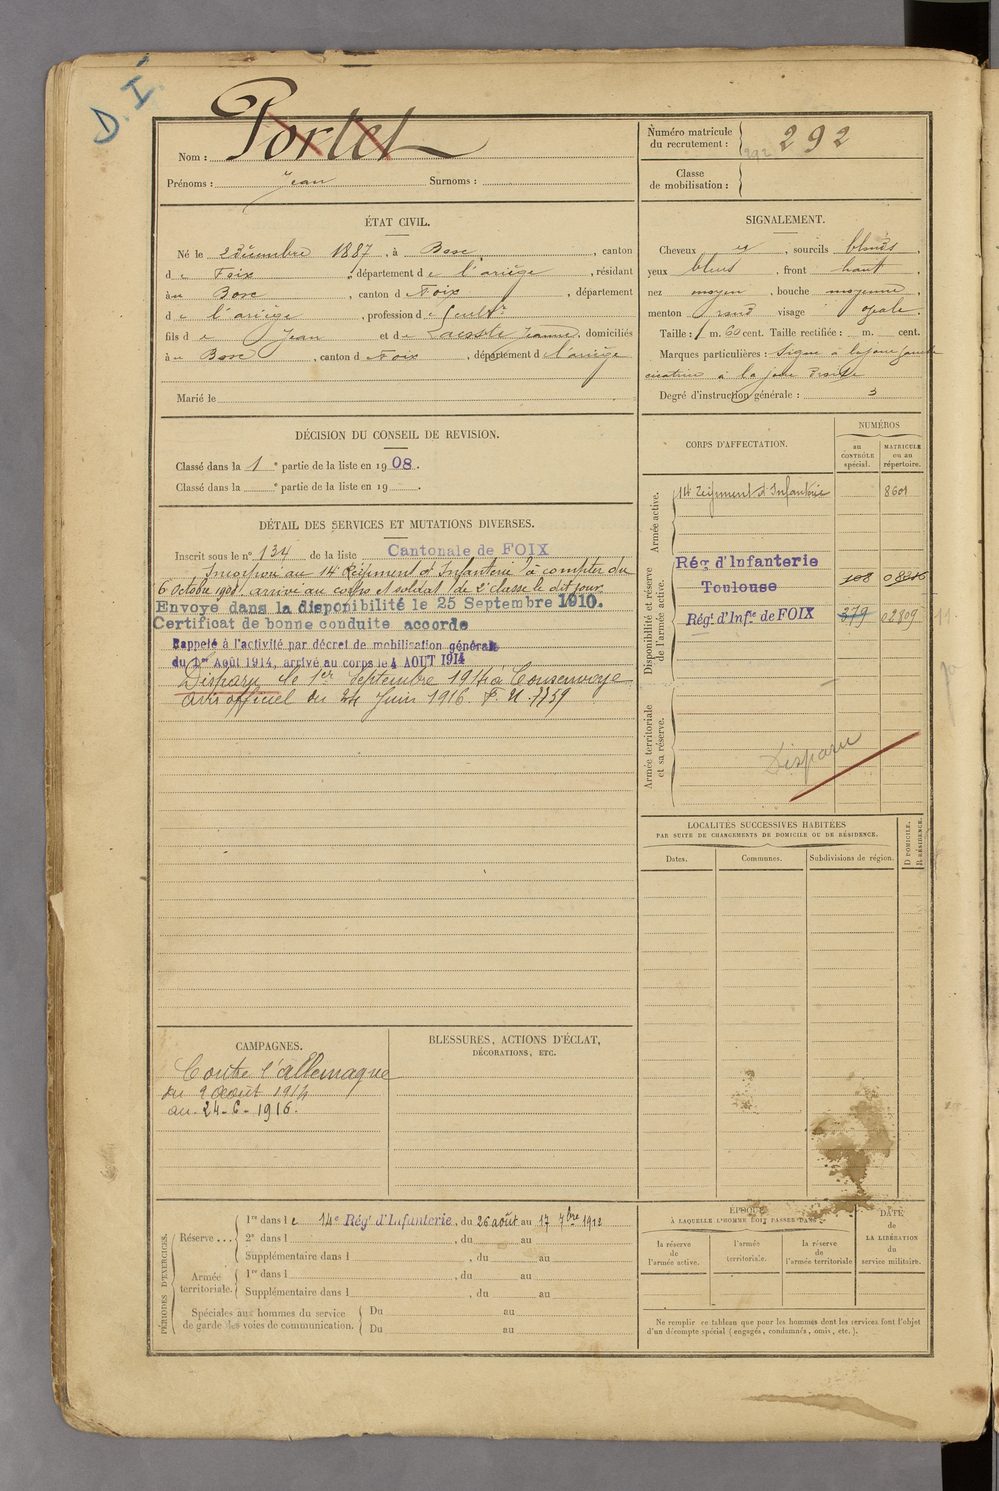 D. I.
Nom : Portet
Prénoms : Jean Surnoms :
Numéro matricule
du recrutement : 292
292
Classe
de mobilisation :
ÉTAT CIVIL.
Né le 2 décembre 1887, à Bosc, canton
de Foix, département de l'ariège, résidant
à Bosc, canton d Foix, département
de l'ariège, profession de Cultr
fils de Jean et de Lacoste Jeanne, domiciliés
à Bosc, canton d Foix, département d l'ariège
Marié le
SIGNALEMENT.
Cheveux et, sourcils blonds
yeux bleus, front haut,
nez moyen, bouche moyenne,
menton rond visage ovale.
Taille : 1 m. 60 cent. Taille rectifiée : m. cent.
Marques particulières : Signe à la joue gauche
cicatrice à la joue droite
Degré d'instruction générale : 3
DÉCISION DU CONSEIL DE REVISION.
Classé dans la 1e partie de la liste en 1908.
Classé dans la e partie de la liste en 19 .
DÉTAIL DES SERVICES ET MUTATIONS DIVERSES.
Inscrit sous le n° 134 de la liste Cantonale de FOIX
Incorporé au 14e Régiment d'Infanterie à compter du
6 Octobre 1908, arrivé au corps et soldat de 2e classe le dit jour.
Envoyé dans la disponibilité le 25 Septembre 1910.
Certificat de bonne conduite accordé
Rappelé à l'activité par décret de mobilisation générale
du 1er Août 1914, arrivé au corps le 4 AOUT 1914
Disparu le 1er Septembre 1914 à Consenvoye
avis officiel du 24 Juin 1916. F. U. 7759
CORPS D'AFFECTATION.
NUMÉROS
au
CONTRÔLE
spécial.
MATRICULE
ou au
répertoire.
Armée active.
14e Régiment d'Infanterie 8601
Disponibilité et réserve
de l'armée active.
Rég. d'Infanterie
Toulouse 108
Régt d'Infie de FOIX 379 02809
Armée territoriale
et sa réserve.
Disparu
LOCALITÉS SUCCESSIVES HABITÉES
PAR SUITE DE CHANGEMENTS DE DOMICILE OU DE RÉSIDENCE.
Dates. Communes. Subdivisions de région.
D DOMICILE.
R RÉSIDENCE.
CAMPAGNES.
Contre l'allemagne
du 2 Août 1914
au 24-6-1916.
BLESSURES, ACTIONS D'ÉCLAT,
DÉCORATIONS, ETC.
PÉRIODES D'EXERCICES.
Réserve ...
1re dans le 14e Régt d'Infanterie, du 26 août au 17 7bre 1912
2e dans l , du au
Supplémentaire dans l , du au
Armée
territoriale.
1re dans l , du au
Supplémentaire dans l , du au
Spéciales aux hommes du service
de garde des voies de communication.
Du au
Du au
ÉPOQUE
À LAQUELLE L'HOMME DOIT PASSER DANS
la réserve
de
l'armée active.
l'armée
territoriale.
la réserve
de
l'armée territoriale
DATE
de
LA LIBÉRATION
du
service militaire.
Ne remplir ce tableau que pour les hommes dont les services font l'objet
d'un décompte spécial (engagés, condamnés, omis, etc.).